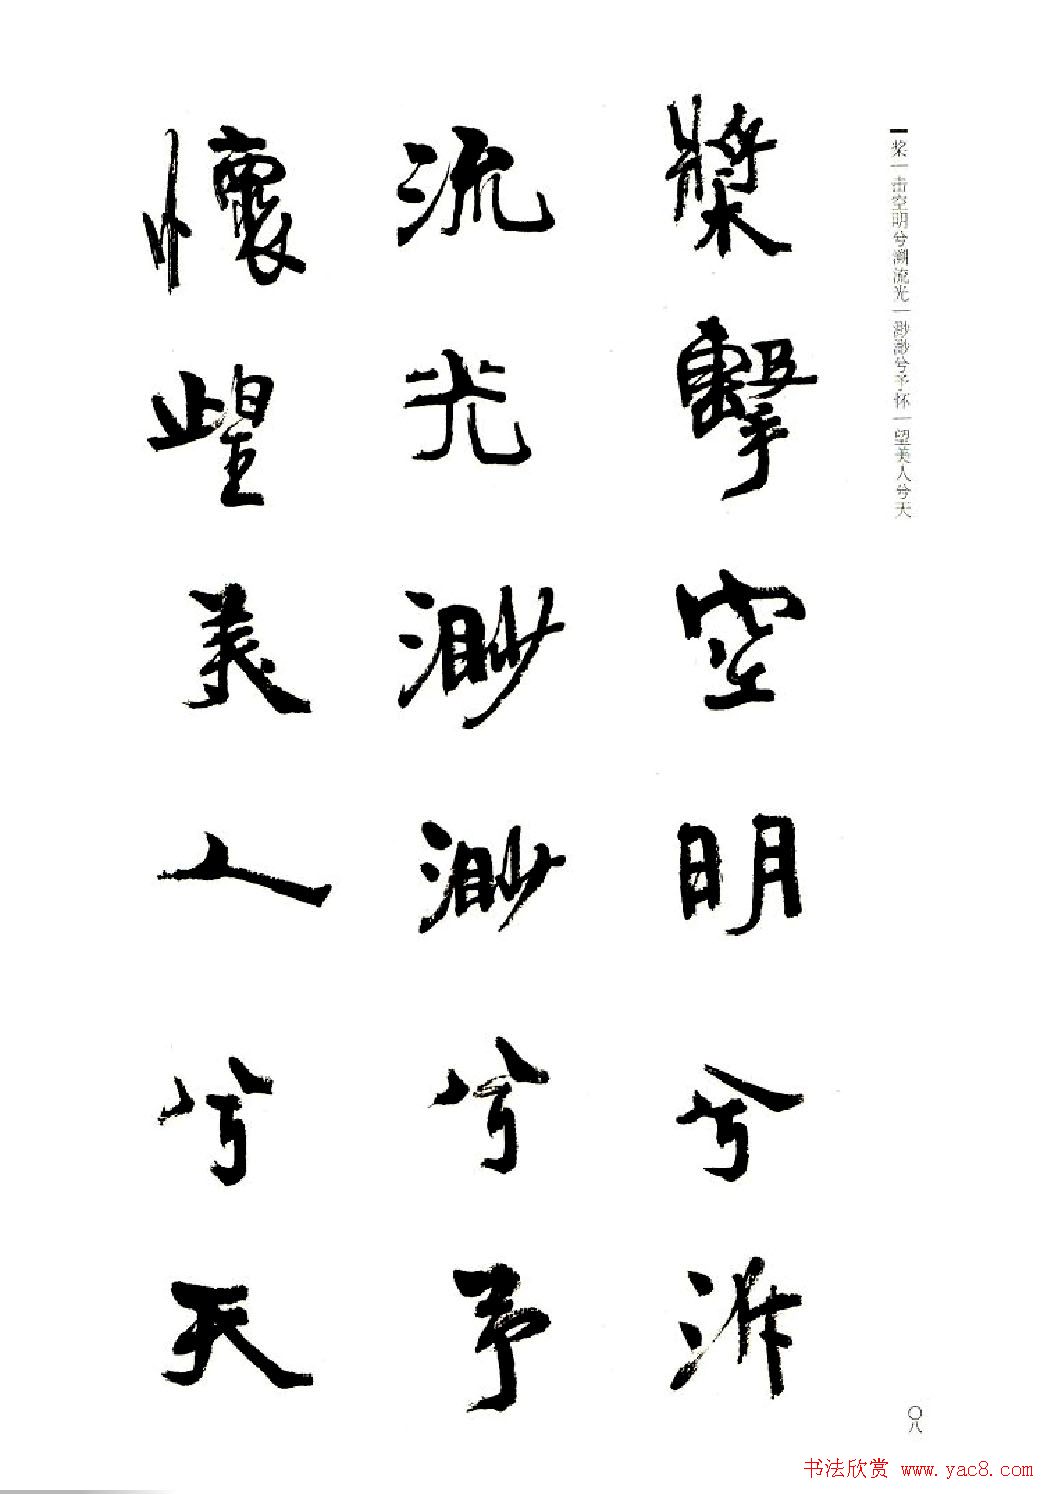 桨｜击空明兮溯流光｜渺渺兮予怀｜望美人兮天
槳擊空明兮泝
流光渺渺兮予
懷望美人兮天
〇八
书法欣赏 www.yac8.com